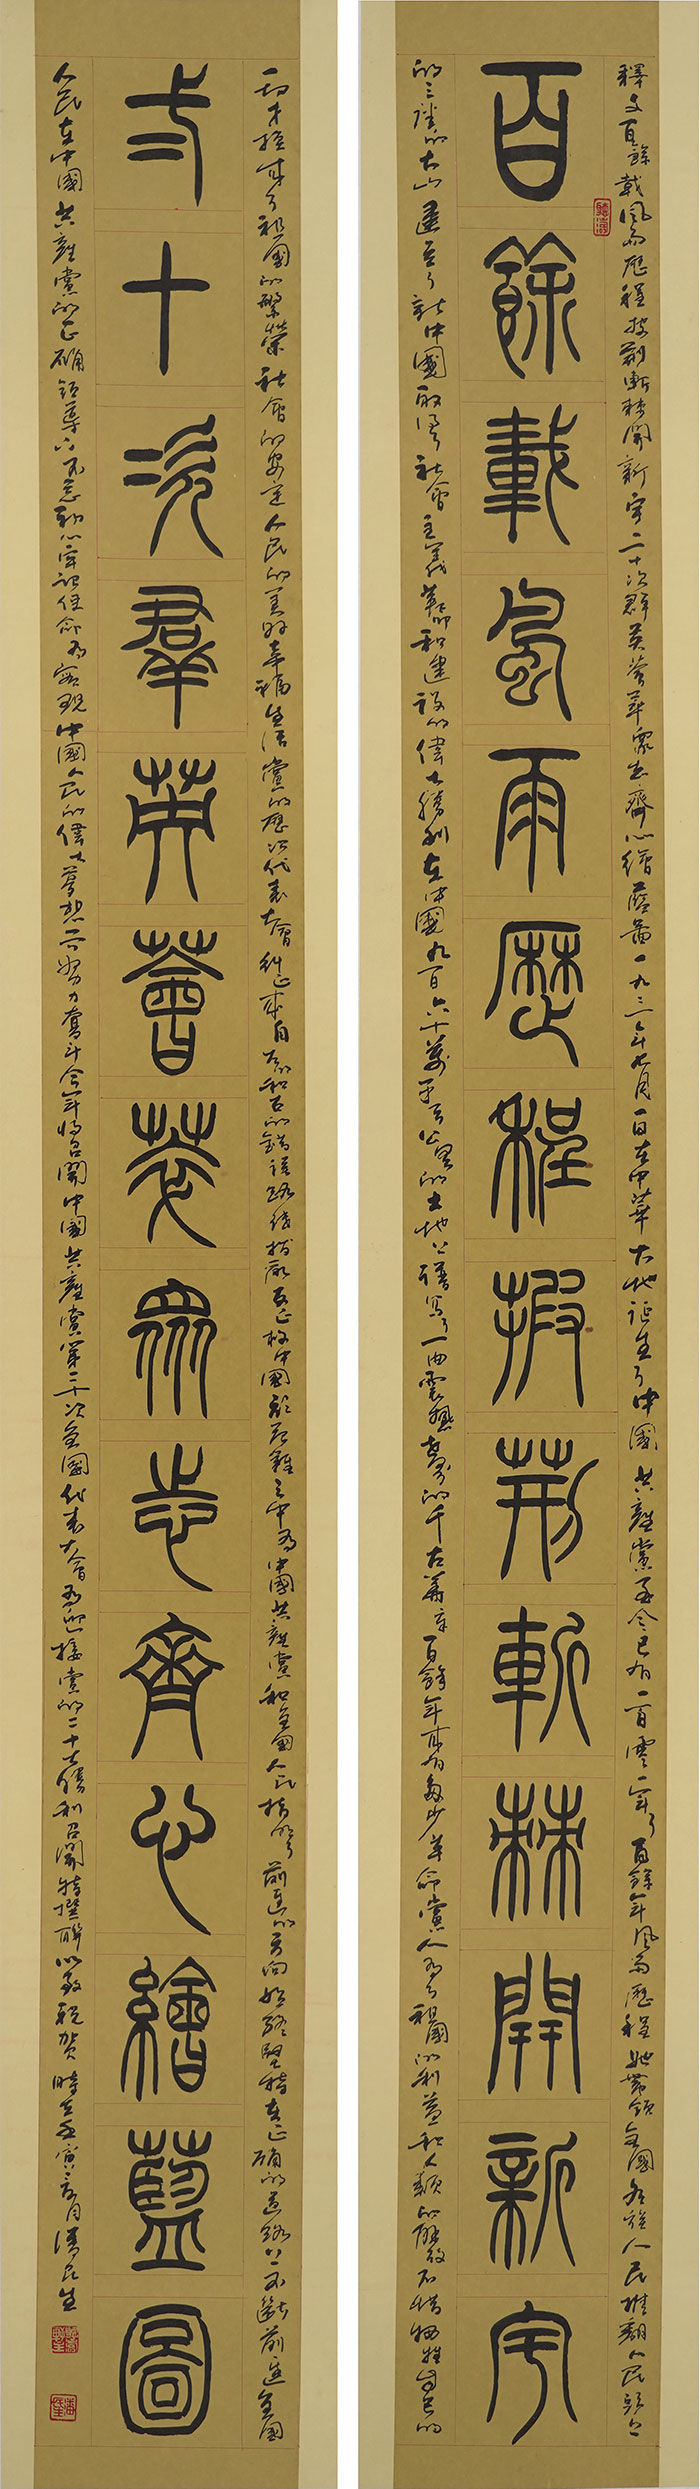 百餘載風雨歷程披荆斬棘開新宇
二十次群英薈萃眾志齊心繪藍圖
釋文百餘載風雨歷程披荆斬棘開新宇二十次群英薈萃眾志齊心繪藍圖一九二一年七月一日在中華大地誕生了中國共產黨至今已有一百零一年了百餘年風雨歷程她帶領全國各族人民推翻人民頭上
的三座大山建立了新中國取得了社會主義革命和建設的偉大勝利在中國九百六十萬平方公里的土地上譜寫了一曲震撼寰宇的千古篇章百餘年來有多少革命黨人為了祖國的利益和人類的解放不惜犧牲自己的
一切才換來了祖國的繁榮社會的安定人民的美好幸福生活黨的歷次代表大會糾正來自左和右的錯誤路線撥亂反正於中國危難之中為中國共產黨和全國人民指明了前進的方向始終堅持在正確的道路上不斷前進全國
人民在中國共產黨的正確領導下不忘初心牢記使命為實現中國人民的偉大夢想而努力奮斗今年將召開中國共產黨第二十次全國代表大會為迎接黨的二十大勝利召開特撰聯以敬祝賀時在壬寅二月潘民生